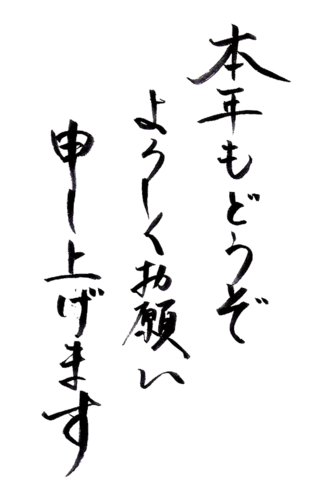 本年もどうぞ
よろしくお願い
申し上げます